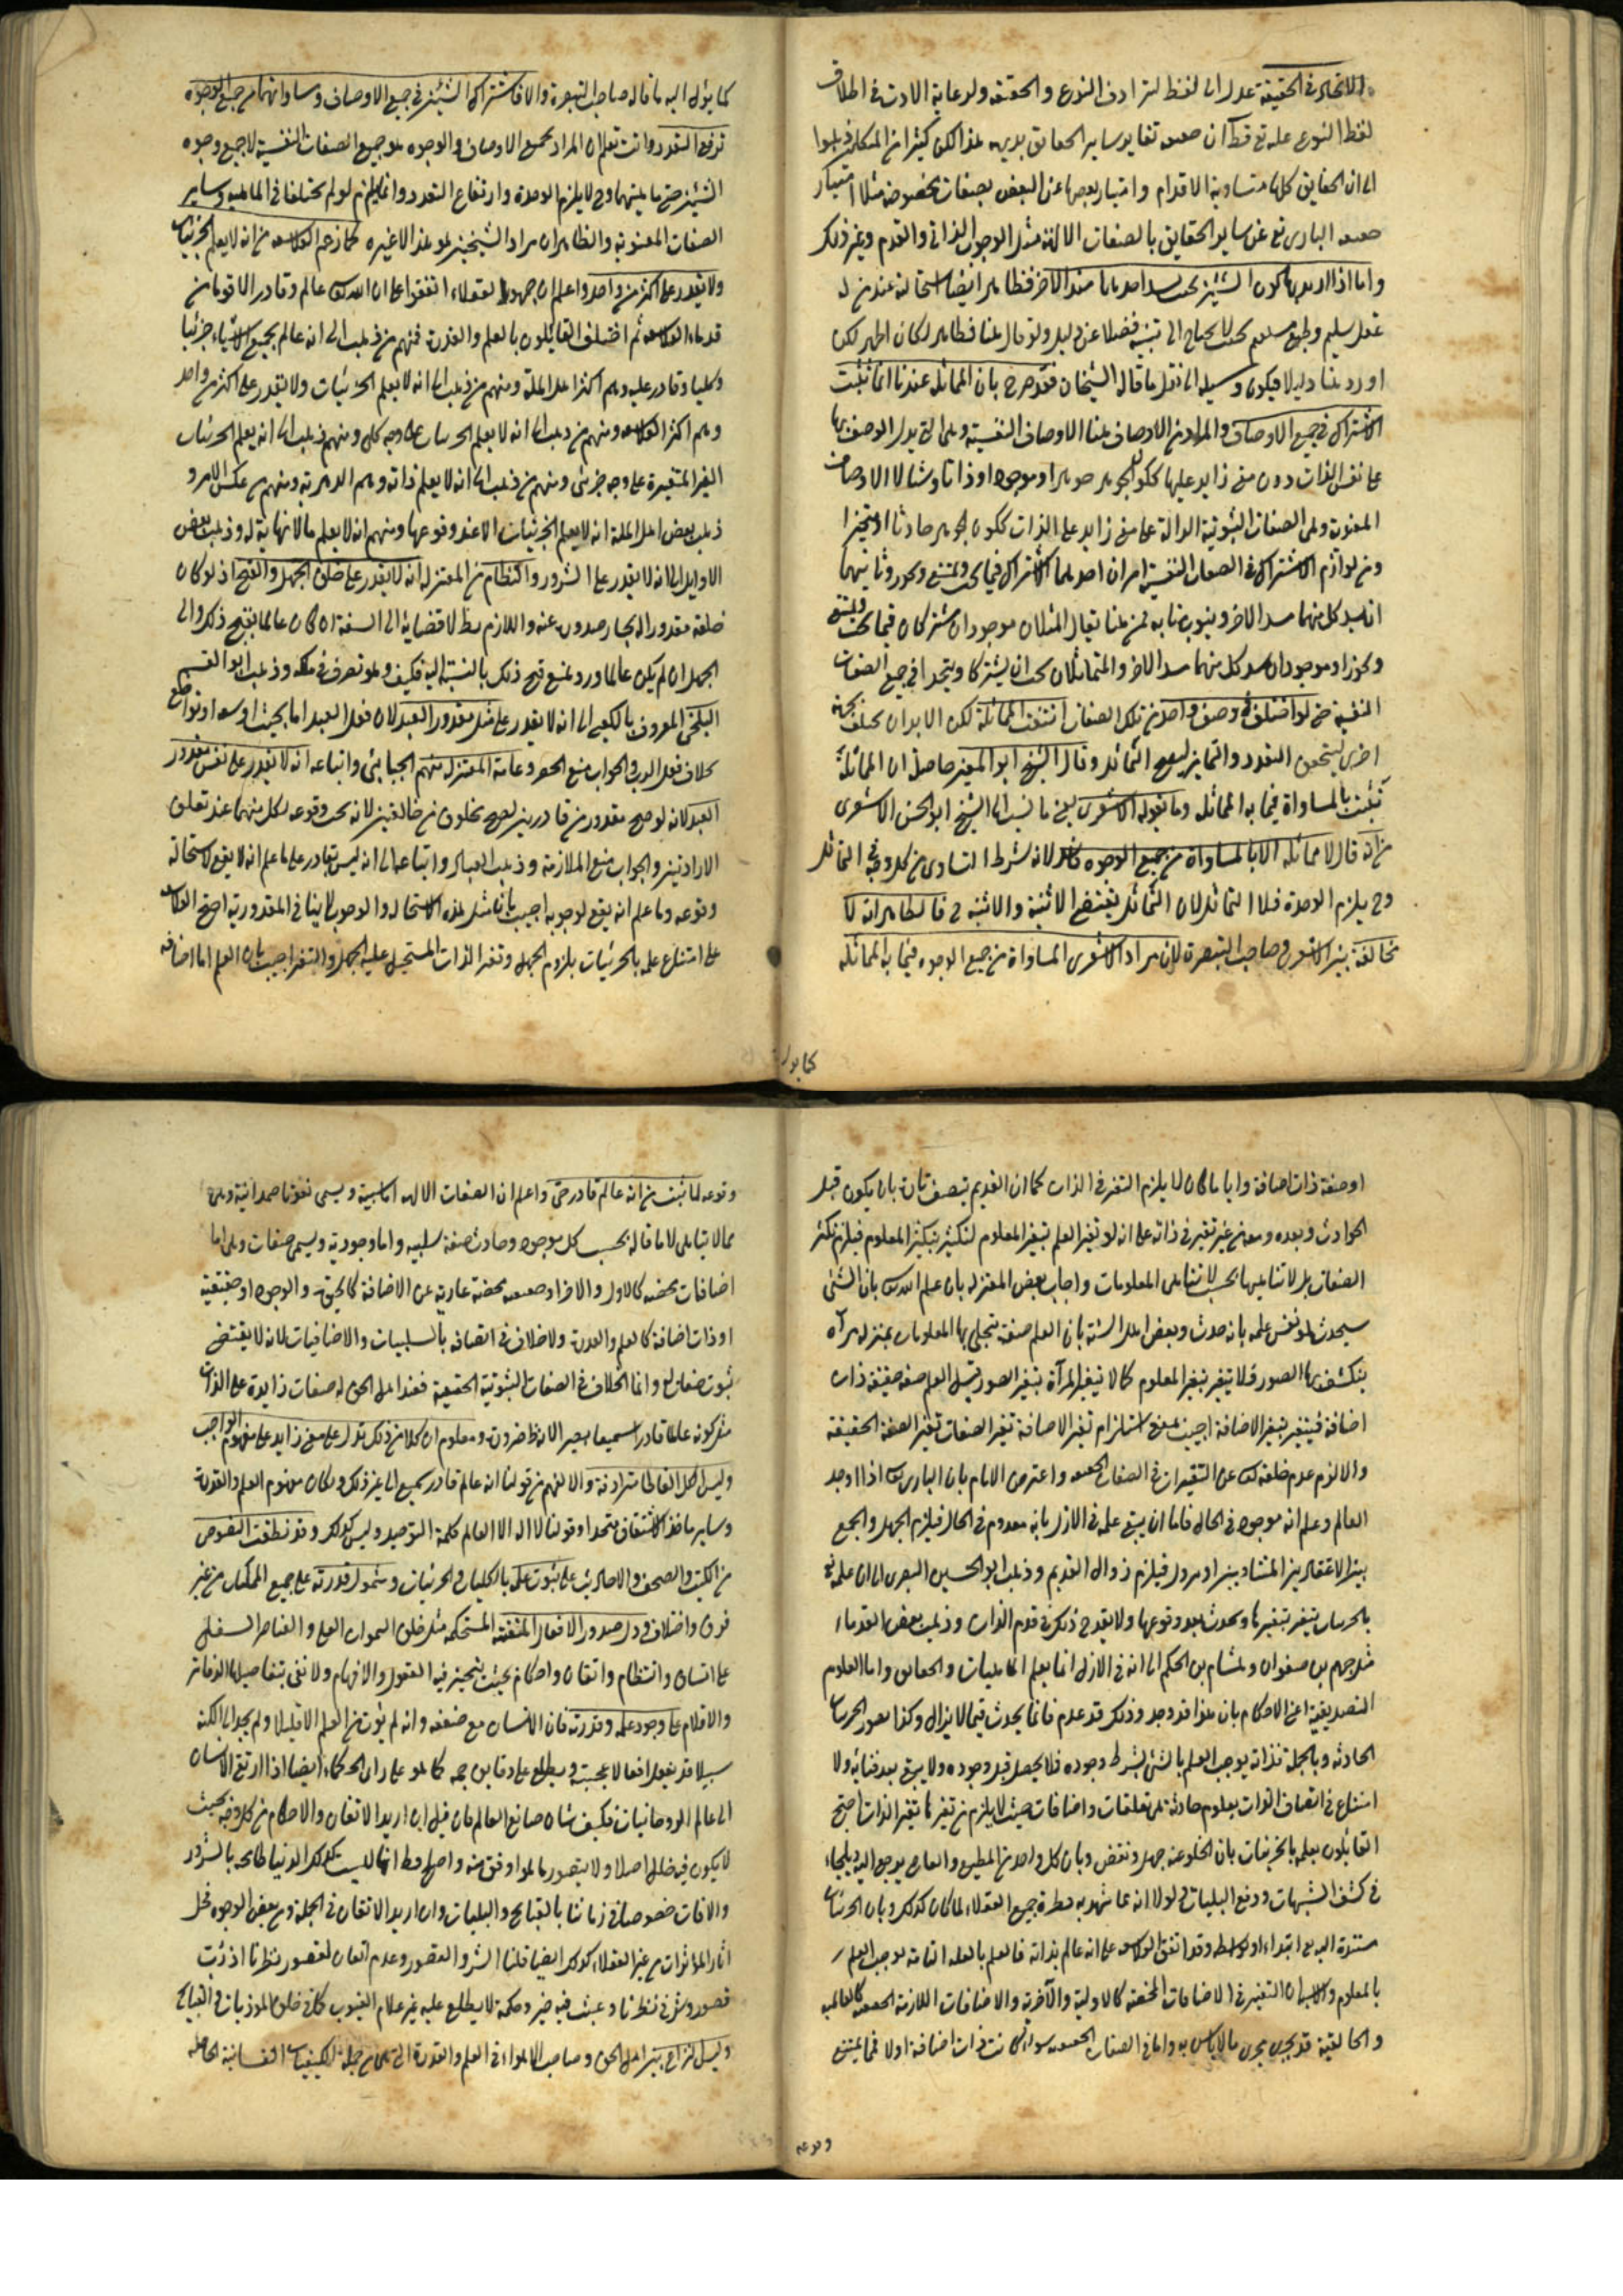 الاتحاد في الحقيقة عدل الى لفظ لترادف النوع والحقيقة ولرعاية الادب في اطلاق
لفظ النوع عليه تع قط آن حقيقته تغاير ساير الحقايق بديهي هذا لكن كثيرا من المتكلمين ذهبوا
الى ان الحقايق كلها متساوية الاقدام وامتياز بعضها عن البعض بصفات مخصوصة مثلا امتياز
حقيقة البارى تع عن ساير الحقايق بالصفات الالهية مثل الوجوب الذاتى والقدم وغير ذلك
واما اذا اريد بها كون الشيئين بحيث يسد احدهما مسد الاخر فظاهر ايضا استحالته عند من له
عقل سليم وطبع مستقيم بحيث لا يحتاج الى تنبيه فضلا عن دليل ولو قال هنا فظاهر لكان اظهر لكن
اورد هنا دليلا فيكون وسيلة الى نقل ما قاله الشيخان فقد صرح بان المماثلة عندنا انما تثبت
الاشتراك في جميع الاوصاف والمراد من الاوصاف هنا الاوصاف النفسية وهى التى يدل الوصف بها
على نفس الذات دون معنى زايد عليها ككون الجوهر جوهرا او موجودا او ذاتا وشيئا لا الاوصاف
المعنوية وهى الصفات الثبوتية الدالة على معنى زايد على الذات ككون الجوهر حادثا او متحيزا
ومن لوازم الاشتراك في الصفات النفسية امران احدهما الاشتراك فيما يجب ويمتنع ويجوز وثانيهما
ان يسد كل منهما مسد الاخر وينوب منابه فمن هنا يقال المثلان موجودان مشتركان فيما يجب ويمتنع
ويجوز او موجودان يسد كل منهما مسد الاخر والمتماثلان يجب ان يشتركا ويتحدا في جميع الصفات
النفسية حتى لو اختلفا في وصف واحد من تلك الصفات انتفت المماثلة لكن لا بد ان يختلف بجهة
اخرى ليتحقق التعدد والتمايز ليصح التماثل وقال الشيخ ابو المعين حاصله ان المماثلة
تثبت بالمساواة فيما به المماثلة وما يقوله الاشعرى يعنى ما نسب الى الشيخ ابو الحسن الاشعرى
من انه قال لا مماثلة الا بالمساواة من جميع الوجوه فاسد لانه شرط التساوى من كل وجه في التماثل
وح يلزم الوحدة فلا التماثل لان التماثل يقتضى الاثنينية والاثنينية فالظاهر انه لا
مخالفة بين الاشعرى وصاحب التبصرة لان مراد الاشعرى المساواة من جميع الوجوه فيما به المماثلة
كما يؤل
كما يؤل اليه ما قاله صاحب التبصرة والا فاشتراك الشيئين في جميع الاوصاف ومساواتهما من جميع الوجوه
ترفع التعدد وانت تعلم ان المراد بجميع الاوصاف والوجوه هو جميع الصفات النفسية لا جميع وجوه
الشيئين حتى ماهيتهما وح لا يلزم الوحدة وارتفاع التعدد وانما يلزم لو لم يختلفا في الماهية وساير
الصفات المعنوية والظاهر ان مراد الشيخين هو هذا لا غيره كما زعم الفلاسفة من انه لا يعلم الجزئيات
ولا يقدر على اكثر من واحد واعلم ان جمهور العقلاء اتفقوا على ان الله تع عالم وقادر الا قوما من
قدماء الفلاسفة ثم اختلف القائلون بالعلم والقدرة فمنهم من ذهب الى انه عالم بجميع الاشياء جزئيا
وكليا وقادر عليه وهم اكثر اهل الملة ومنهم من ذهب الى انه لا يعلم الجزئيات ولا يقدر على اكثر من واحد
وهم اكثر الفلاسفة ومنهم من ذهب الى انه لا يعلم الجزئيات على وجه كلى ومنهم ذهب الى انه يعلم الجزئيات
الغير المتغيرة على وجه جزئى ومنهم من ذهب الى انه لا يعلم ذاته وهم الدهرية ومنهم من عكس الامر و
ذهب بعض اهل الملة انه لا يعلم الجزئيات الا عند وقوعها ومنهم انه لا يعلم ما لا نهاية له وذهب بعض
الاوايل الى انه لا يقدر على الشرور والنظام من المعتزلة انه لا يقدر على خلق الجهل والقبح اذ لو كان
خلقه مقدورا له لجاز صدوره عنه واللازم بط لافضائه الى السفه ان كان عالما بقبح ذلك والى
الجهل ان لم يكن عالما ورد بمنع قبح ذلك بالنسبة اليه فكيف وهو تصرف في ملكه وذهب ابو القسم
البلخى المعروف بالكعبى الى انه لا يقدر على مثل مقدور العبد لان فعل العبد اما بحيث او سفه او تواضع
بخلاف فعل الرب والجواب منع الحصر وعامة المعتزلة منهم الجبائى واتباعه انه لا يقدر على نفس مقدور
العبد لانه لو صح مقدور من قادرين لصح مخلوق من خالقين لانه يجب وقوعه لكل منهما عند تعلق
الارادتين والجواب منع الملازمة وذهب العباد واتباعه الى انه ليس بقادر على ما علم انه لا يقع لاستحالة
وقوعه وما علم انه يقع لوجوبه اجيب بان مثل هذه الاستحالة والوجوب لا ينافى المقدورية احتج الفلاسفة
على امتناع علمه بالجزئيات بلزوم الجهل وتغير الذات المستحيل عليه الجهل والتغير اجيب بان العلم اما اضافة
او صفة ذات اضافة وايا ما كان لا يلزم التغير في الذات كما ان القديم يتصف تارة بان يكون قبل
الحوادث وبعده ومعه من غير تغير في ذاته على انه لو تغير العلم بتغير المعلوم لتكثر بتكثر المعلوم فيلزم تكثر
الصفات بل لا تناهيها بحسب لا تناهى المعلومات واجاب بعض المعتزلة بان علم الله تع بان الشئ
سيحدث هو نفس علمه بانه حدث وبعض اهل السنة بان العلم صفة يتجلى بها المعلومات بمنزلة مرآة
ينكشف بها الصور فلا يتغير بتغير المعلوم كما لا يتغير المرآة بتغير الصور قيل العلم صفة حقيقية ذات
اضافة فيتغير بتغير الاضافة اجيب بمنع استلزام تغير الاضافة تغير الصفات تغير الصفة الحقيقية
والا لزم عدم خلقه تع عن التغيرات في الصفات الحقيقية واعترض الامام بان البارى تع اذا اوجد
العالم وعلم انه موجود في الحال فاما ان يبقى علمه في الازل بانه معدوم في الحال فيلزم الجهل والجمع
بين الاعتقادين المتضادين او يزول فيلزم زوال القديم وذهب ابو الحسين البصرى الى ان علمه تع
بالجزئيات يتغير بتغيرها ويحدث بعد وقوعها ولا يقدح ذلك في قدم الذات وذهب بعض القدماء
مثل جهم بن صفوان وهشام بن الحكم الى انه في الازل انما يعلم الماهيات والحقايق واما العلوم
التصديقية اعنى الاحكام بان هذا قد وجد وذلك قد عدم فانما يحدث فيما لا يزال وكذا تصور الجزئيات
الحادثة وبالجملة فذاته يوجب العلم بالشئ بشرط وجوده فلا يحصل قبل وجوده ولا يبقى بعد فنائه ولا
امتناع في اتصاف الذات بعلوم حادثة هى تعلقات واضافات حيث لا يلزم من تغيرها تغير الذات احتج
القائلون بعلمه بالجزئيات بان الخلو عنه جهل ونقص وبان كل واحد من المطيع والعاصى يرجع اليه ويلجاء
في كشف الشبهات ودفع البليات ولولا انه مما شهد به فطرة جميع العقلاء لما كان كذلك وبان الجزئيات
مستندة اليه تع ابتداء او بواسطة وقد اتفق الفلاسفة على انه عالم بذاته فالعلم بالعلة التامة يوجب العلم
بالمعلوم والاجماع ان التغير في الاضافات المحضة كالاولية والآخرية والاضافات اللازمة الحقيقة كالعالمية
والخالقية قد يجرى مجرى ما لا باس به واما في الصفات الحقيقية سواء كانت ذات اضافة او لا فمما يمتنع
وقوعه
وقوعه لما ثبت من انه عالم قادر حى واعلم ان الصفات الالهية اما سلبية ويسمى نعوتا صمدانية وهى
مما لا يتناهى لا ما قاله بحسب كل موجود وحادث صفة سلبية واما وجودية ويسمى صفات وهى اما
اضافات محضة كالاول والافراد حقيقية محضة عارية عن الاضافة كالحيوة والوجود او حقيقية
او ذات اضافة كالعلم والقدرة ولا خلاف في اتصافه بالسلبيات والاضافيات لانه لا يقتضى
ثبوت صفات له وانما الخلاف في الصفات الثبوتية الحقيقية فعند اهل الحق له صفات زايدة على الذات
مثل كونه عالما قادرا سميعا بصيرا لانه ظاهر ضرورة ومعلوم ان كلا من ذلك تدل على معنى زايد على مفهوم الواجب
وليس الكل الفاظا مترادفة والا لفهم من قولنا انه عالم قادر سميع الى غير ذلك ولكان مفهوم العلم والقدرة
وساير ماخذ الاشتقاق متحدا وقولنا لا اله الا العالم كلمة التوحيد وليس كذلك وقد نطقت النصوص
من الكتب والصحف والاحاديث على ثبوت علمه بالكليات والجزئيات وشمول قدرته على جميع الممكنات من غير
فرق واختلاف ودل صدور الافعال المتقنة المستحكمة مثل خلق السموات العلى والعناصر السفلى
على اتساق وانتظام واتقان واحكام بحيث يتحير فيه العقول والافهام ولا تفى بتفاصيلها الدفاتر
والاقلام على وجود علمه وقدرته فان الانسان مع ضعفه وانه لم يؤت من العلم الا قليلا ولم يجد الى الكنه
سبيلا قد يفعل افعالا عجيبة ويطلع على دقايق جمة كما هو على راى الحكماء ايضا اذا ارتقى الانسان
الى عالم الروحانيات فكيف شان صانع العالم فان قيل ان اريد الاتقان والاحكام من كل وجه بحيث
لا يكون فيه خلل اصلا ولا يتصور ما هو اوفق منه واصلح فظ انها ليست كذلك الدنيا طافحة بالشرور
والافات خصوصا في زماننا بالقبايح والبليات وان اريد الاتقان في الجملة ومن بعض الوجوه فجل
اثار المؤثرات من غير العقلاء كذلك ايضا قلنا الشر والقصور وعدم اتقان لقصور نظرنا اذ رب
قصور وشر في نظرنا وعبث فيه خير وحكمة لا يطلع عليه غير علام الغيوب كما في خلق الموذيات والقبايح
وليس نزاع بين اهل الحق وصاحب الاهواء في العلم والقدرة التى هى من جملة الكيفيات النفسانية الحاصلة